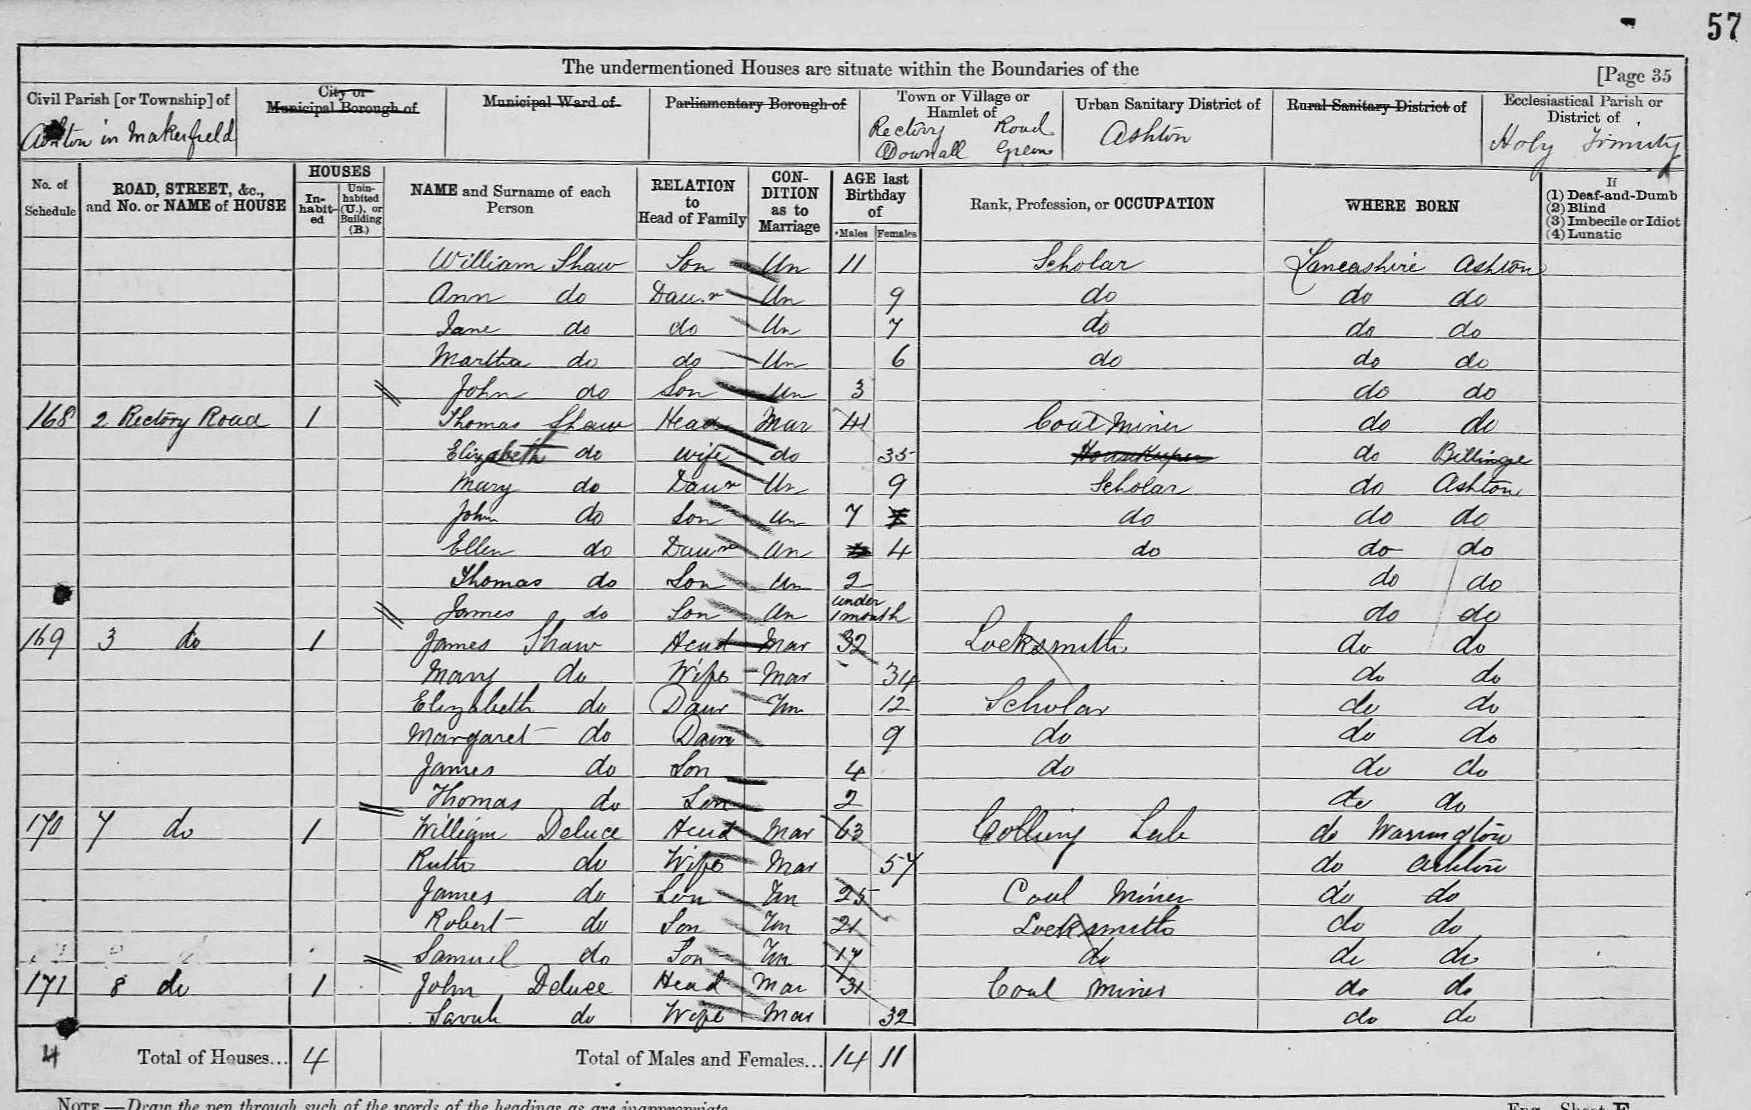 57
The undermentioned Houses are situate within the Boundaries of the [Page 35
Civil Parish [or Township] of City or Municipal Borough of Municipal Ward of Parliamentary Borough of Town or Village or Hamlet of Urban Sanitary District of Rural Sanitary District of Ecclesiastical Parish or District of
Ashton in Makerfield Rectory Road Downall Green Ashton Holy Trinity
No. of Schedule ROAD, STREET, &c., and No. or NAME of HOUSE HOUSES In-habit-ed Unin-habited (U.), or Building (B.) NAME and Surname of each Person RELATION to Head of Family CON-DITION as to Marriage AGE last Birthday of Males Females Rank, Profession, or OCCUPATION WHERE BORN If (1) Deaf-and-Dumb (2) Blind (3) Imbecile or Idiot (4) Lunatic
William Shaw Son Un 11 Scholar Lancashire Ashton
Ann do Daur Un 9 do do do
Jane do do Un 7 do do do
Martha do do Un 6 do do do
John do Son Un 3 do do
168 2 Rectory Road 1 Thomas Shaw Head Mar 41 Coal Miner do do
Elizabeth do wife do 35 Housekeeper do Billinge
Mary do Daur Un 9 Scholar do Ashton
John do Son Un 7 do do do
Ellen do Daur Un 4 do do do
Thomas do Son Un 2 do do
James do Son Un under 1 month do do
169 3 do 1 James Shaw Head Mar 32 Locksmith do do
Mary do Wife Mar 34 do do
Elizabeth do Daur Un 12 Scholar do do
Margaret do Daur 9 do do do
James do Son 4 do do do
Thomas do Son 2 do do
170 7 do 1 William Deluce Head Mar 63 Colliery Lab do Warrington
Ruth do Wife Mar 57 do Ashton
James do Son Un 25 Coal Miner do do
Robert do Son Un 21 Locksmith do do
Samuel do Son Un 17 do do do
171 8 do 1 John Deluce Head Mar 31 Coal Miner do do
Sarah do Wife Mar 32 do do
4 Total of Houses... 4 Total of Males and Females... 14 11
NOTE.—Draw the pen through such of the words of the headings as are inappropriate.
Eng.—Sheet E